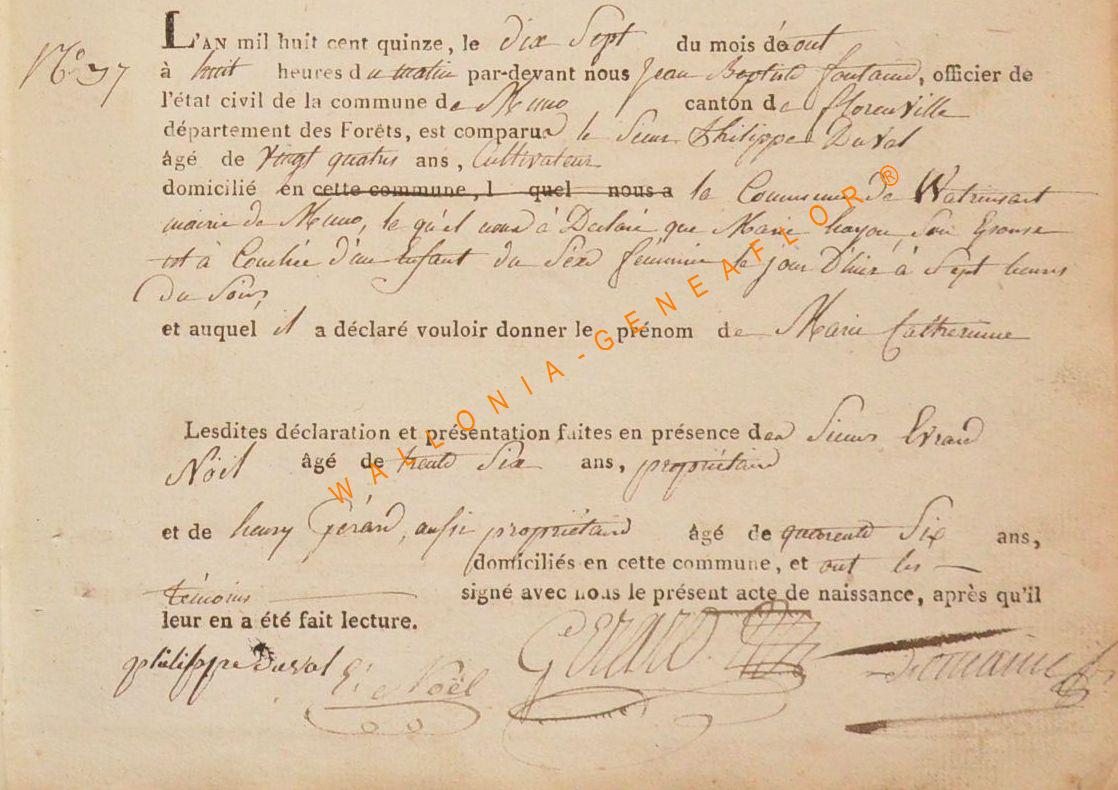 N° 37
L'AN mil huit cent quinze, le dix Sept du mois d'aout
à huit heures du matin par-devant nous Jean Baptiste fontaine, officier de
l'état civil de la commune de Muno canton de florenville
département des Forêts, est comparu le Sieur Philippe Duval
âgé de Vingt quatre ans, Cultivateur
domicilié en cette commune, l quel nous a la Commune de Watrinsart
mairie de Muno, le qu'el nous à Declaré que Marie hayon, Son Epouse
est à Couchée d'un Enfant du Sexe féminin le jour D'hier à Sept heures
Du Soir,
et auquel il a déclaré vouloir donner le prénom de Marie Catherinne
Lesdites déclaration et présentation faites en présence des Sieurs Evrard
Noël âgé de trente Six ans, propriétaire
et de henry Gérard, aussi propriétaire âgé de quarente Six ans,
domiciliés en cette commune, et ont les
témoins signé avec nous le présent acte de naissance, après qu'il
leur en a été fait lecture.
philippe duval E. Noël Gerard fontaine
WALLONIA-GENEAFLOR®